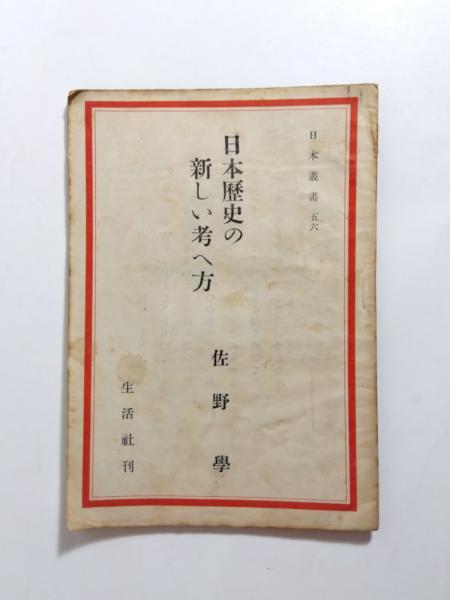 日本叢書 五六
日本歷史の
新しい考へ方
佐野學
生活社刊